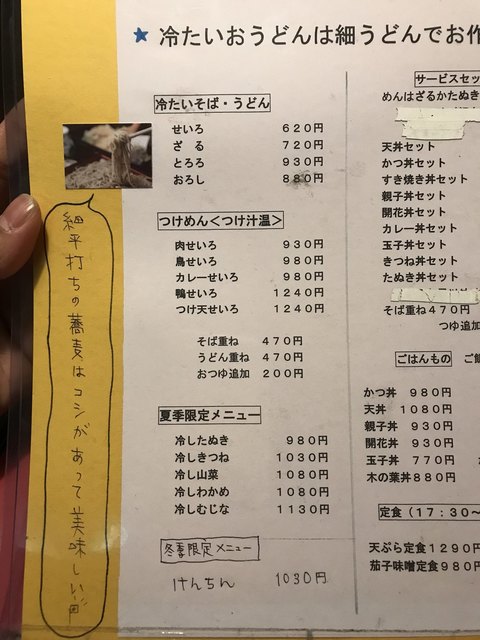 ★ 冷たいおうどんは細うどんでお作
冷たいそば・うどん
せいろ 620円
ざる 720円
とろろ 930円
おろし 880円
つけめん<つけ汁温>
肉せいろ 930円
鳥せいろ 980円
カレーせいろ 980円
鴨せいろ 1240円
つけ天せいろ 1240円
そば重ね 470円
うどん重ね 470円
おつゆ追加 200円
夏季限定メニュー
冷したぬき 980円
冷しきつね 1030円
冷し山菜 1080円
冷しわかめ 1080円
冷しむじな 1130円
冬季限定メニュー
けんちん 1030円
細平打ちの蕎麦はコシがあって美味しい
サービスセッ
めんはざるかたぬき
天丼セット
かつ丼セット
すき焼き丼セット
親子丼セット
開花丼セット
カレー丼セット
玉子丼セット
きつね丼セット
たぬき丼セット
そば重ね470円
つゆ追加
ごはんもの ご飯
かつ丼 980円
天丼 1080円
親子丼 930円
開花丼 930円
玉子丼 770円
木の葉丼880円
定食(17:30~
天ぷら定食1290円
茄子味噌定食980円